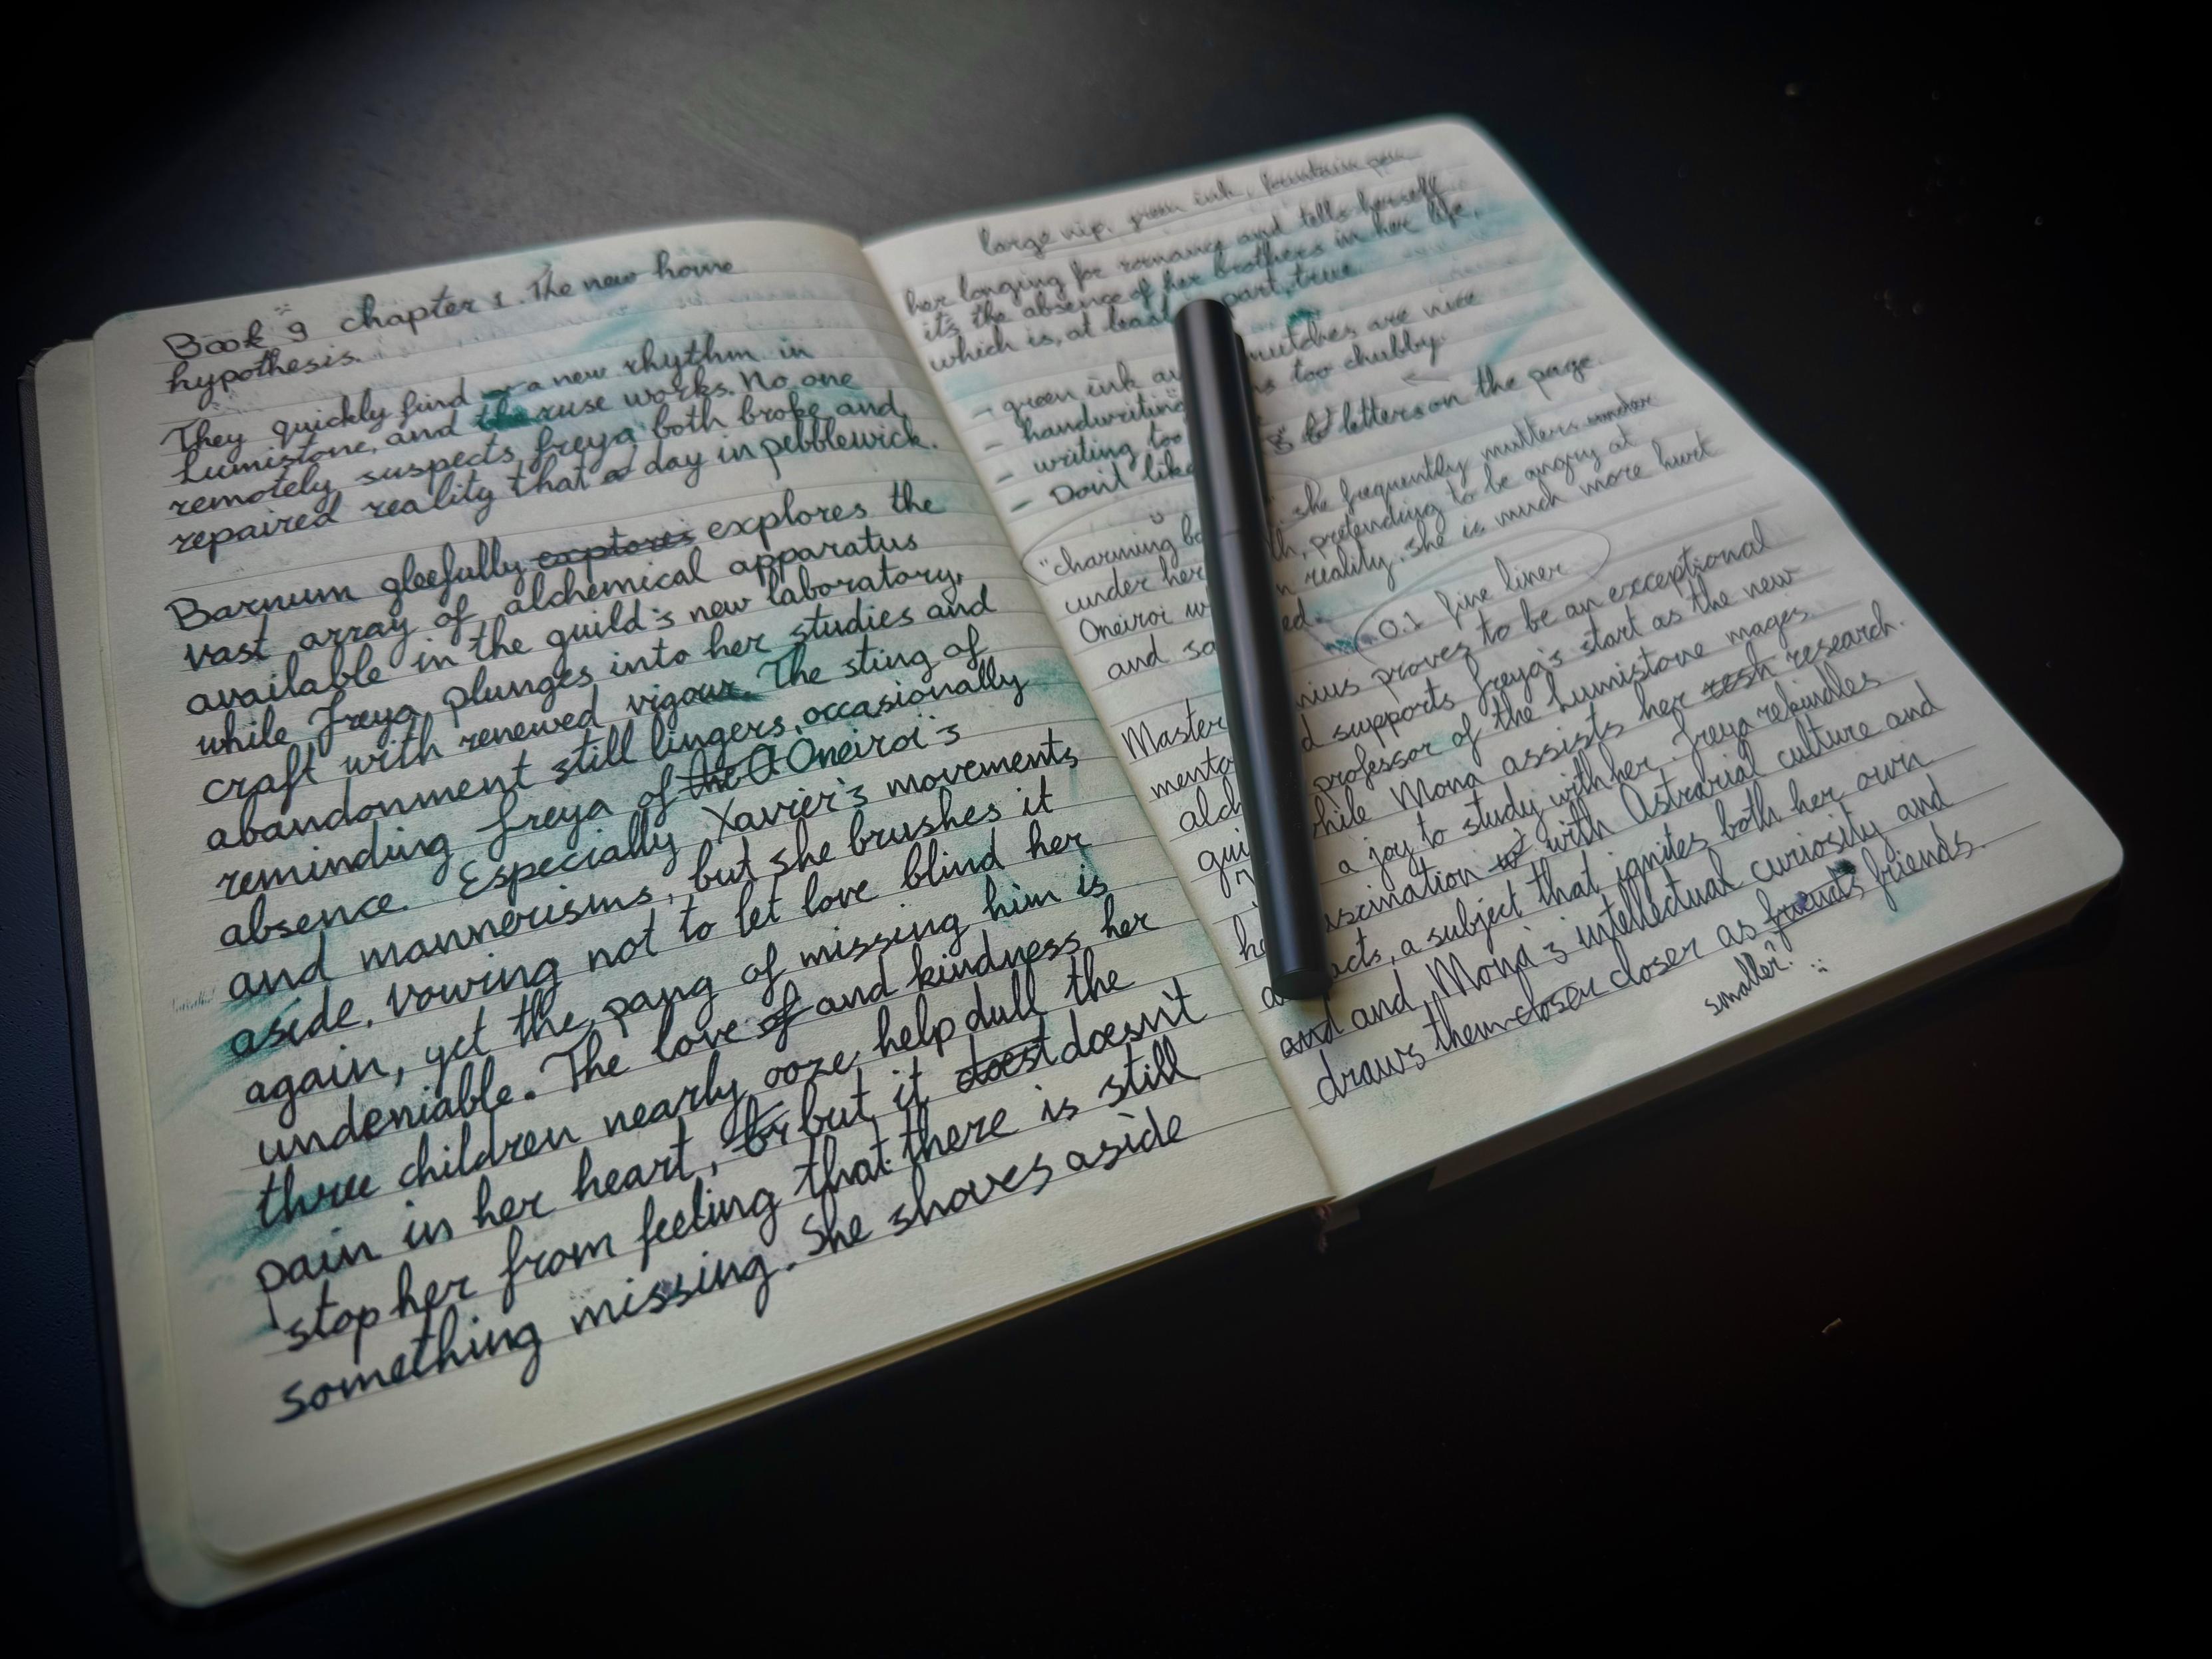 Book 9 chapter 1. The new home
hypothesis.
They quickly find a new rhythm in
Lumistone, and the ruse works. No one
remotely suspects Freya both broke and
repaired reality that a day in pebblewick.
Barnum gleefully explores explores the
vast array of alchemical apparatus
available in the guild's new laboratory,
while Freya plunges into her studies and
craft with renewed vigour. The sting of
abandonment still lingers, occasionally
reminding Freya of the O Oneiroi's
absence. Especially Xavier's movements
and mannerisms, but she brushes it
aside, vowing not to let love blind her
again, yet the pang of missing him is
undeniable. The love of and kindness her
three children nearly ooze, help dull the
pain in her heart, br but it doest doesn't
stop her from feeling that there is still
something missing. She shoves aside
large nip. green ink, fountain pen
her longing for romance and tells herself
it's the absence of her brothers in her life,
which is, at least part, true.
- green ink smutches are nice
- handwriting too chubby.
- writing too letters on the page.
- Don't like
"charming she frequently mutters under
under her pretending to be angry at
Oneiroi reality. She is much more hurt
and
0.1 fine liner
Master proves to be an exceptional
supports Freya's start as the new
professor of the Lumistone mages
Mona assists her resh research.
a joy to study with her. Freya rekindles
w with Astrarial culture and
a subject that ignites both her own
and and Mona's intellectual curiosity and
draws them closer closer as friends friends.
smaller?